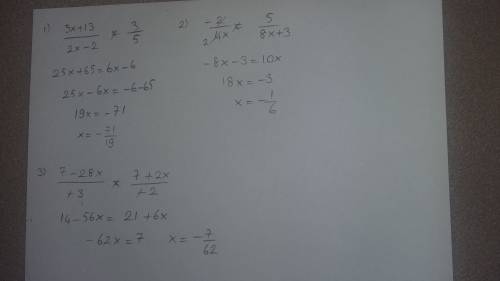 1) 5x+13 / 2x-2 × 3/5
25x+65=6x-6
25x-6x=-6-65
19x=-71
x=-71/19
2) -2 / 4x × 5 / 8x+3
2
-8x-3=10x
18x=-3
x=-1/6
3) 7-28x / ÷3 × 7+2x / ÷2
14-56x=21+6x
-62x=7 x=-7/62